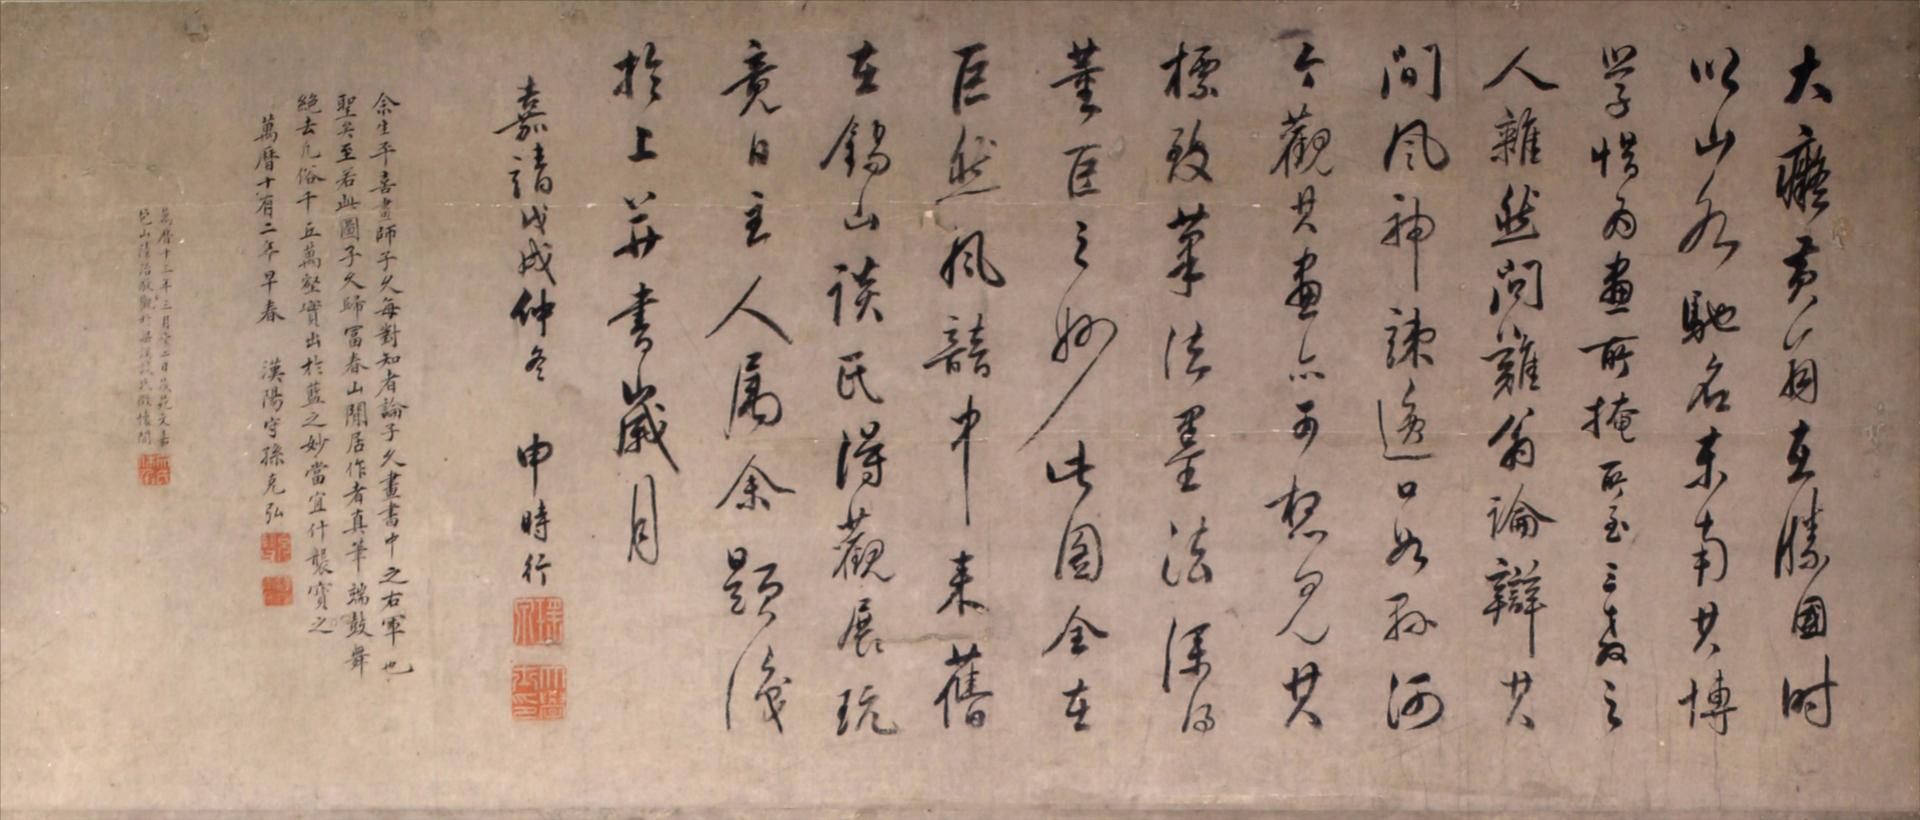 大癡黃翁在勝國時
以山水馳名東南其博
学惜為畫所掩所至三教之
人雜然問難翁論辯其
間風神疎逸口如懸河
今觀其畫亦可想見其
標致葦法墨法深得
董巨之妙此圖全在
巨然風韻中来舊
在錫山談氏得觀展玩
竟日主人屬余題後
於上并書歲月
嘉靖戊戌仲冬 申時行
余生平喜畫師子久每對知者論子久畫書中之右軍也
聖矣至若此圖子久歸富春山閒居作者真筆端鼓舞
絕去凡俗千丘萬壑實出於藍之妙當宜什襲寶之
萬曆十有二年早春 漢陽守孫克弘
萬曆十三年三月 二日茂苑文嘉
包山陸治敬觀於梁溪談氏 間